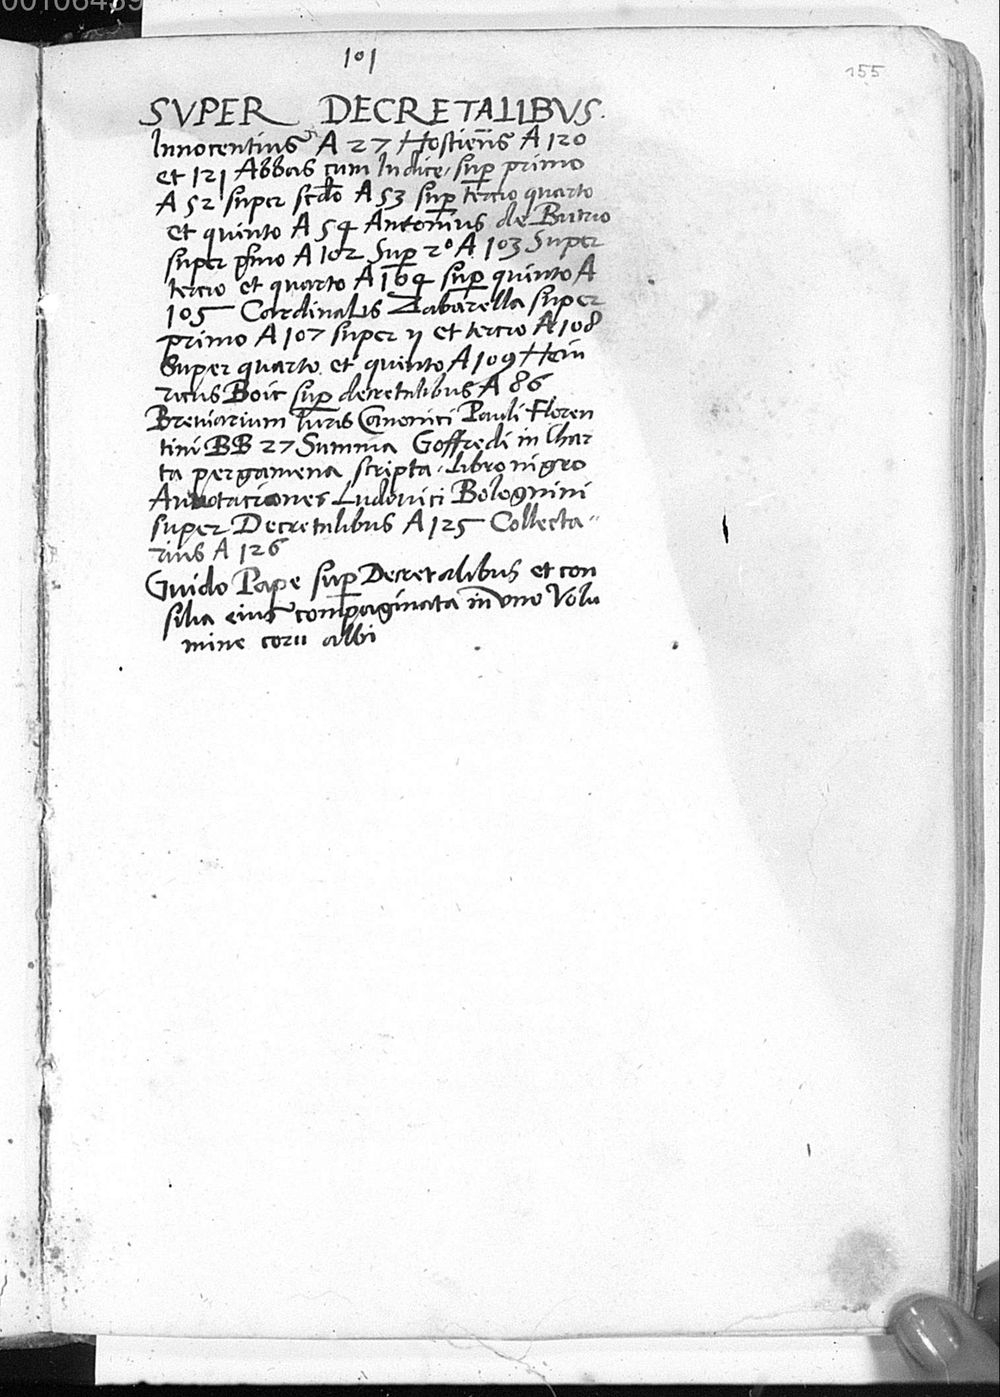 101
155
SVPER DECRETALIBVS.
Innocentius A 27 Hostieñs A 120
et 121 Abbas cum Indice, sup primo
A 52 super scdo A 53 sup tercio quarto
et quinto A 54 Antonius de Butrio
super pimo A 102 Sup 2º A 103 Super
tercio et quarto A 104 sup quinto A
105 Cardinalis Zabarella super
primo A 107 super ij et tercio A 108
Super quarto et quinto A 109 Hein
ricus Boic sup decretalibus A 86
Breviarium Iuris Canonici Pauli Floren
tini BB 27 Summa Goffredi in Char
ta pergamena scripta, libro nigro
Annotaciones Ludovici Bolognini
super Decretalibus A 125 Collecta-
rius A 126
Guido Pape sup Decretalibus et con
silia eius compaginata in vno Volu
mine corii albi